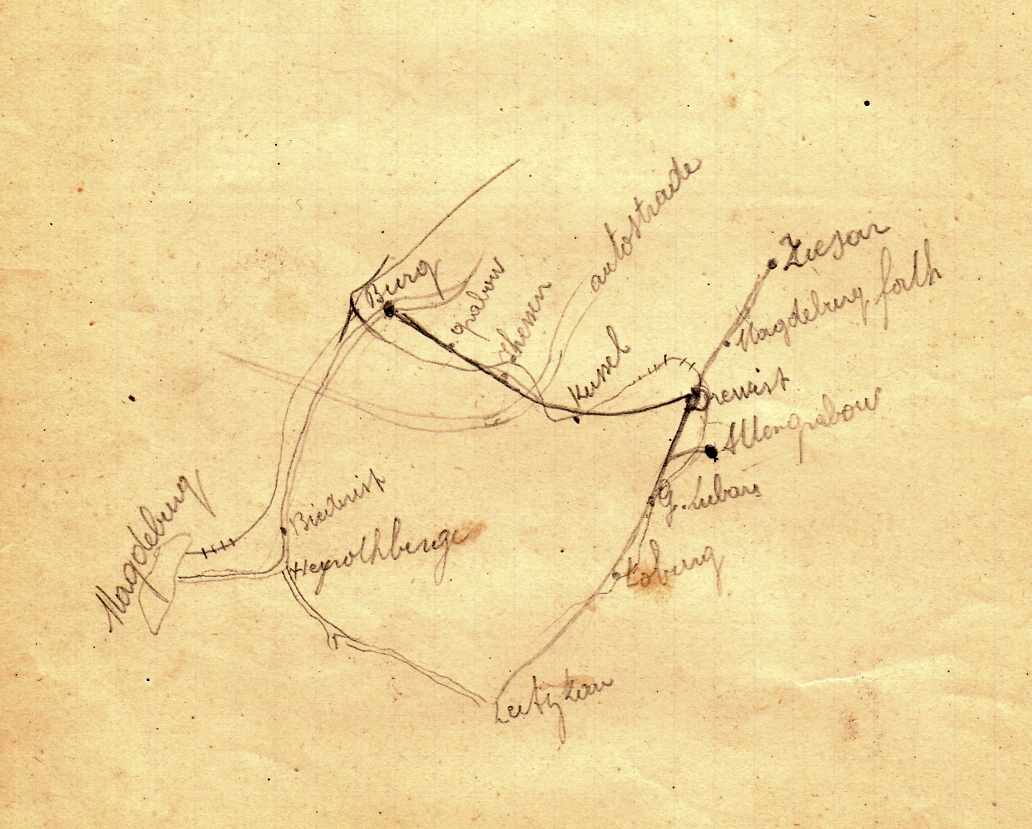 autostrade
Ziesar
Burg
grabow
Magdeburg forth
Thessen
Küsel
Drewist
Altengrabow
Biederist
G. Lubars
Magdeburg
Heyrothberge
Loburg
Leitzkau